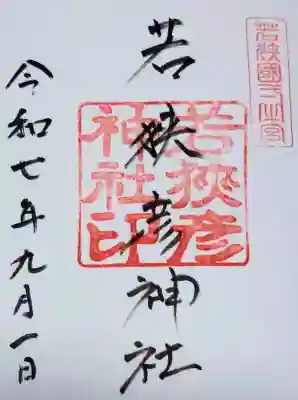 若狭國一之宮
若狭彦神社
若狭彦神社印
令和七年九月一日